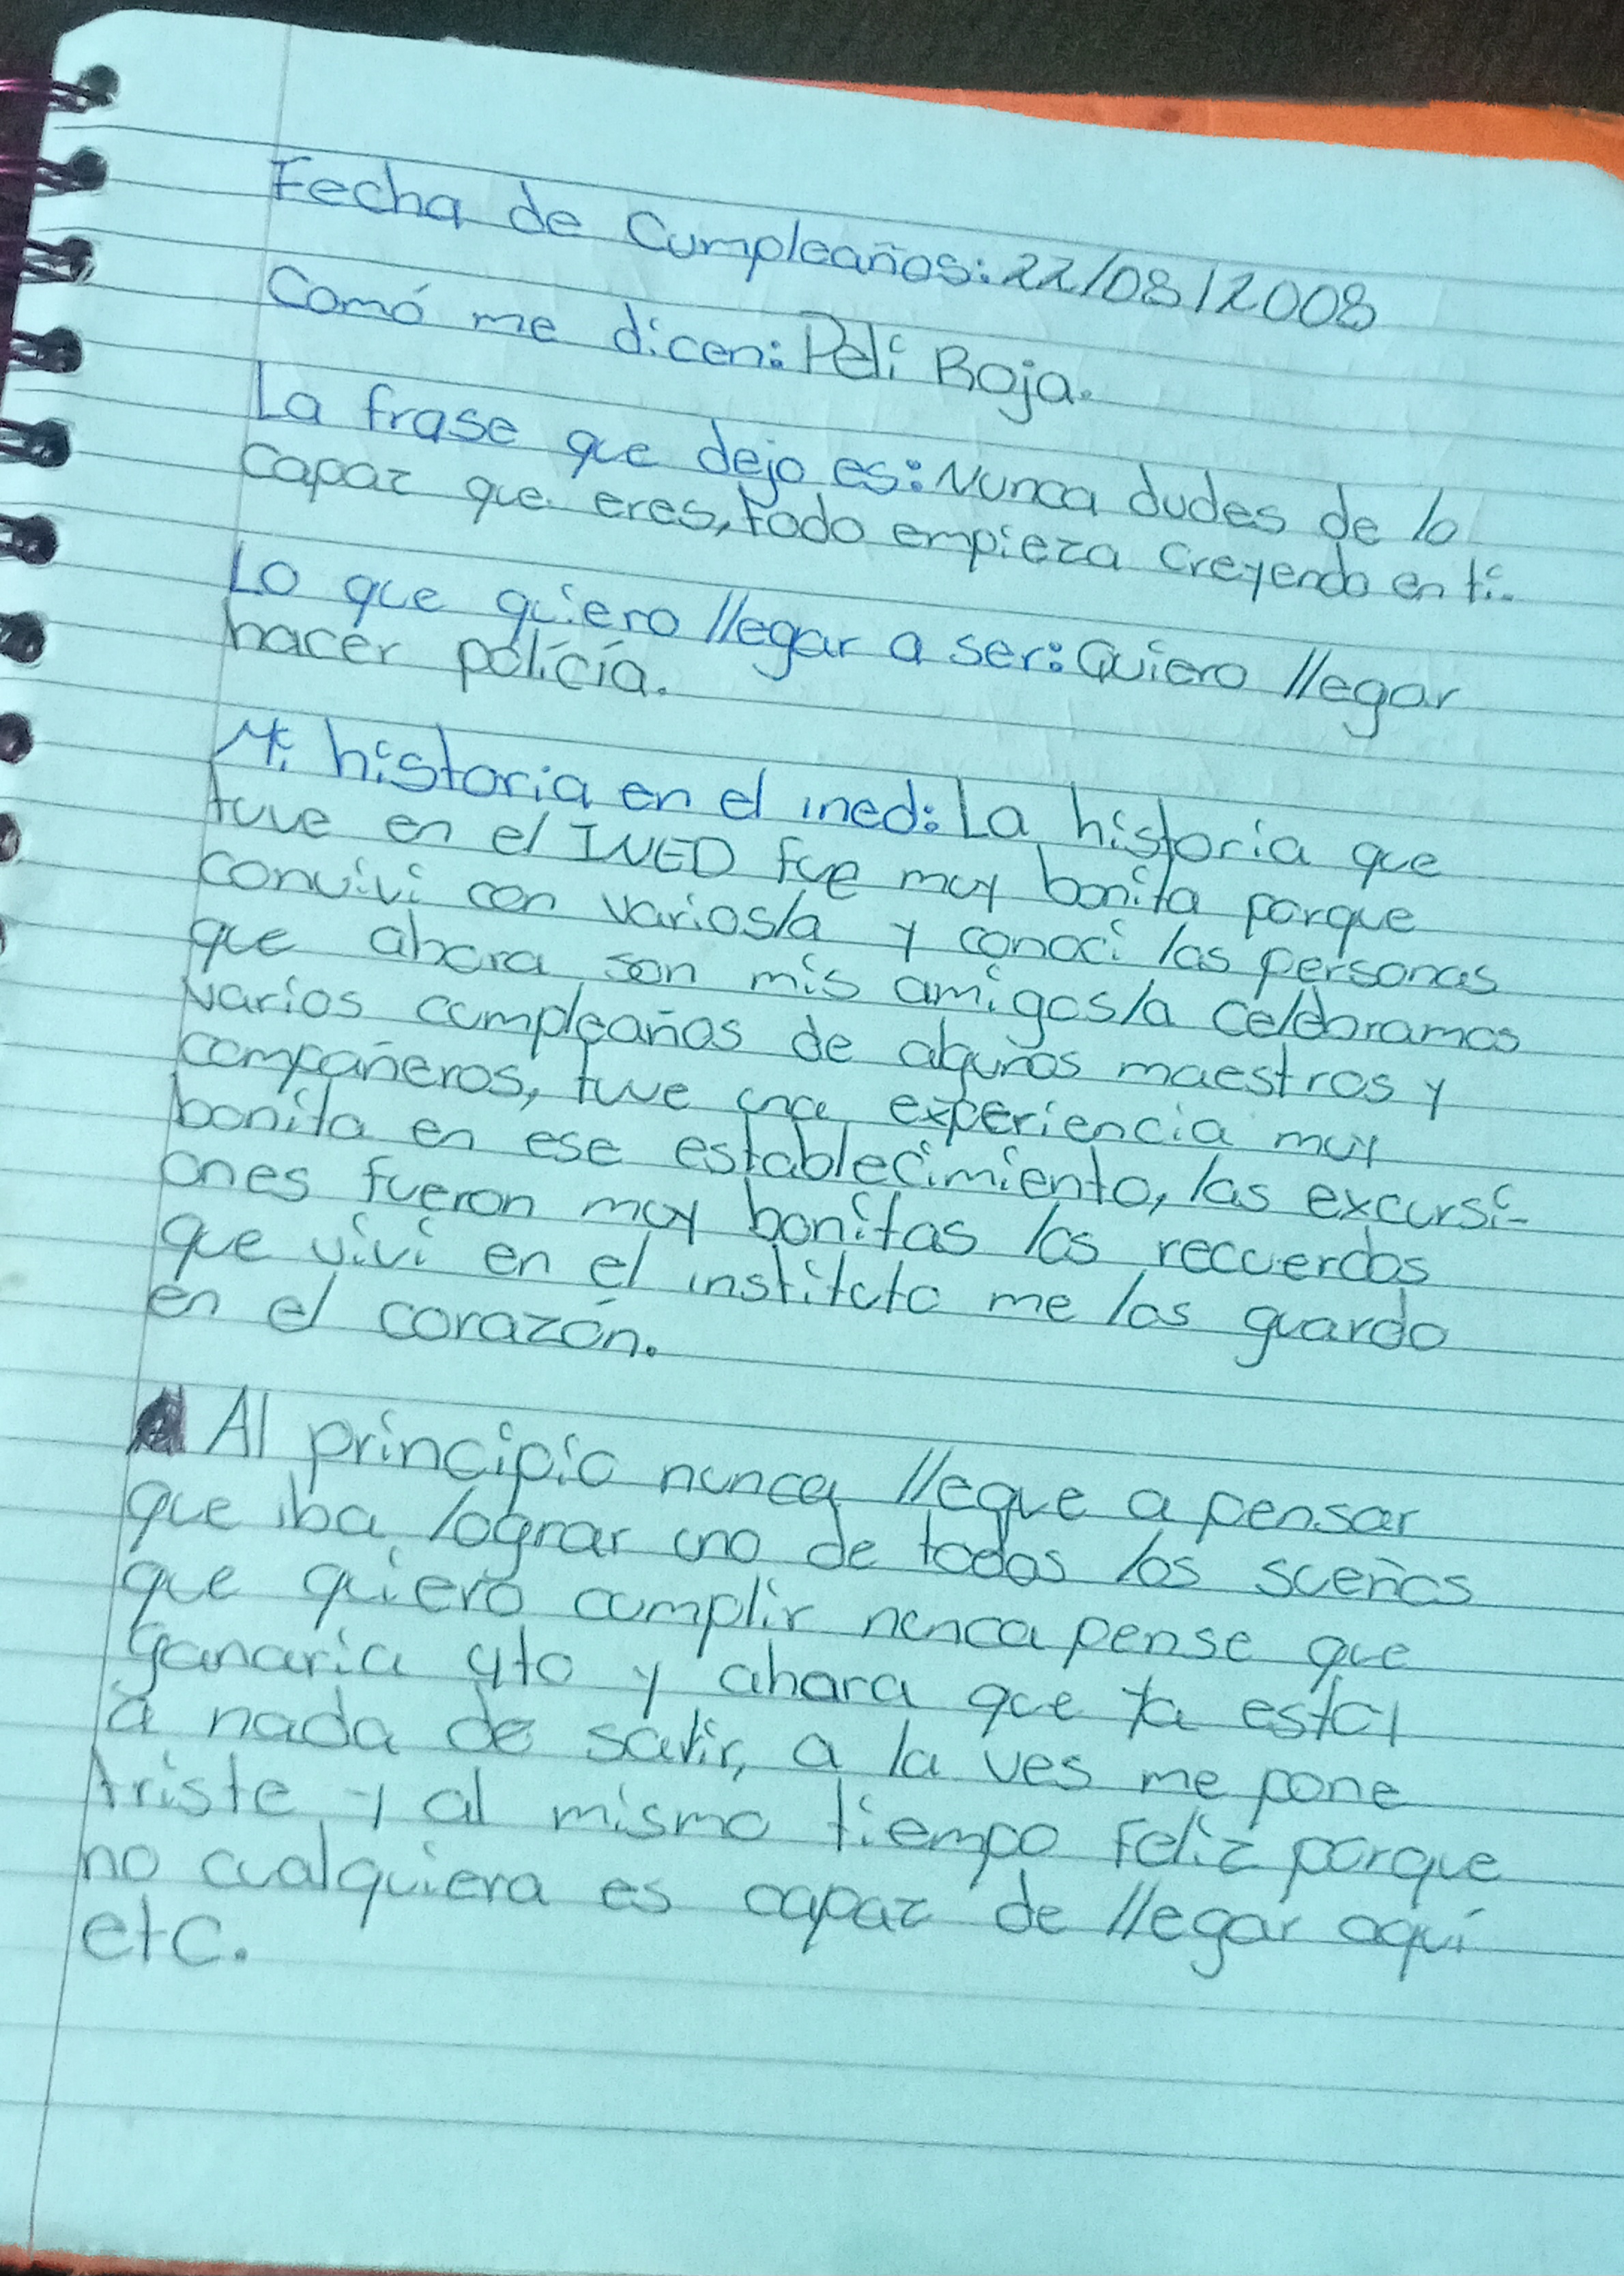 Fecha de Cumpleaños: 22/08/2008
Comó me dicen: Peli Roja.
La frase que dejo es: Nunca dudes de lo
capaz que eres, todo empieza creyendo en ti.
Lo que quiero llegar a ser: Quiero llegar
hacer polícía.
Mi historia en el ined: La historia que
tuve en el INED fue muy bonita porque
conviví con varios/a y conocí las personas
que ahora son mis amigos/a celebramos
varios cumpleaños de algunos maestros y
compañeros, tuve una experiencia muy
bonita en ese establecimiento, las excursi-
ones fueron muy bonitas los recuerdos
que viví en el instituto me los guardo
en el corazón.
Al principio nunca llegue a pensar
que iba lograr uno de todos los sueños
que quiero cumplir nunca pense que
ganaria 4to y ahora que ya estoy
a nada de salir, a la ves me pone
triste y al mismo tiempo feliz porque
no cualquiera es capaz de llegar aquí
etc.